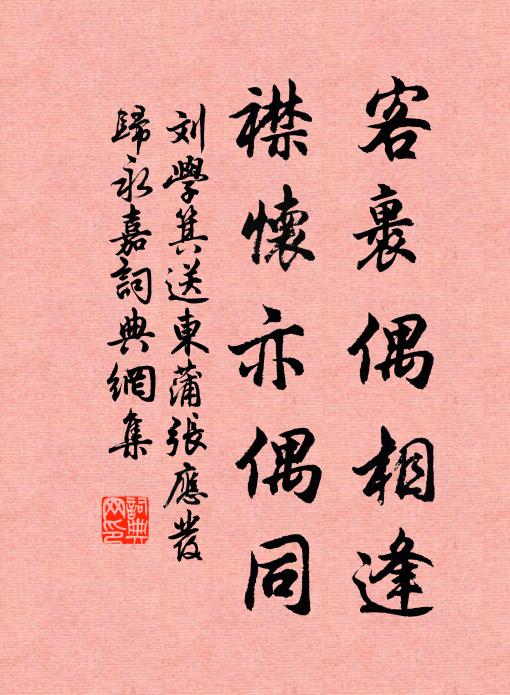 客裏偶相逢
襟懷亦偶同
刘學箕送東蒲張應發
歸永嘉詞典網集
詞典
网印